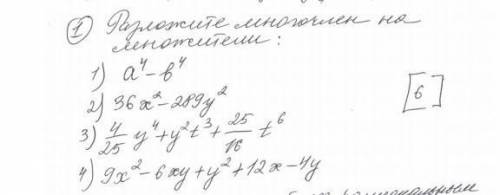 ① Разложите многочлен на
множители:
1) a⁴ - в⁴
2) 36x² - 289y²
[6]
3) 4/25 y⁴ + y²t³ + 25/16 t⁶
4) 9x² - 6xy + y² + 12x - 4y